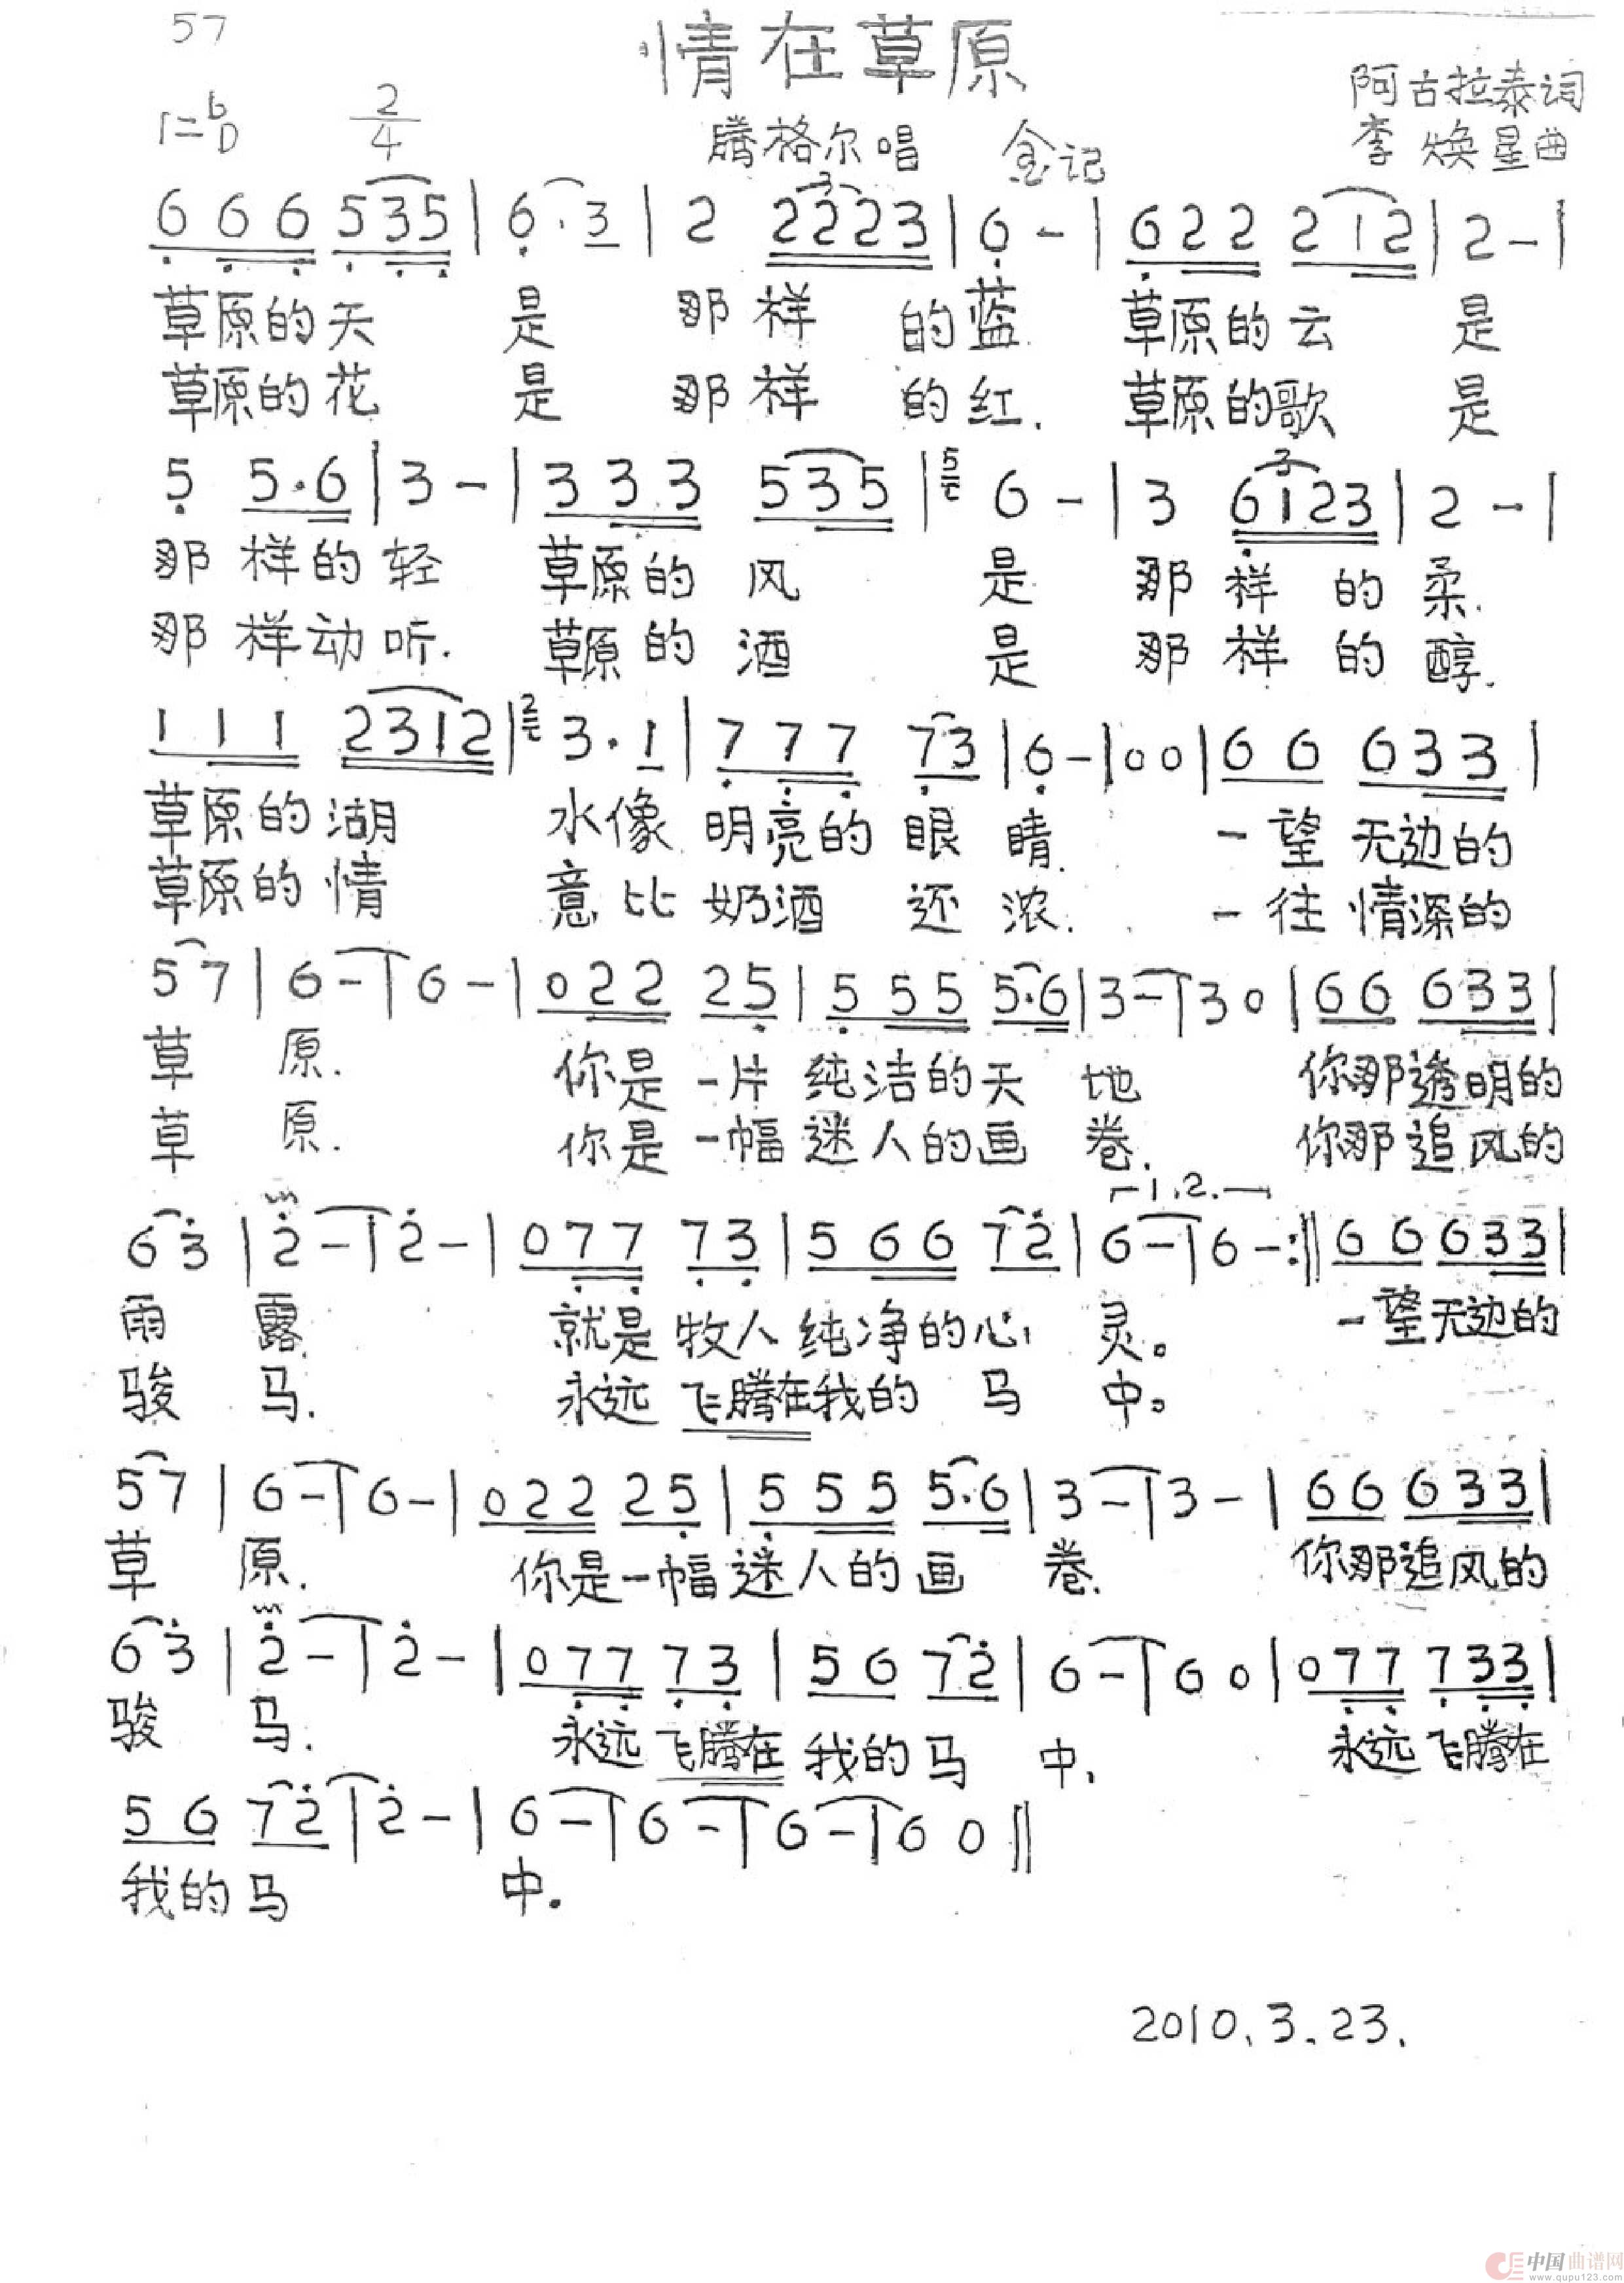 57
情在草原
1=ᵇD 2/4 腾格尔唱 金记
阿古拉泰词
李焕星曲
6 6 6 5 3 5 | 6 · 3 | 2 2 2 2 3 | 6 - | 6 2 2 2 1 2 | 2 - |
草原的天 是 那样 的蓝. 草原的云 是
草原的花 是 那样 的红. 草原的歌 是
5 5 · 6 | 3 - | 3 3 3 5 3 5 | 5 6 - | 3 6 1 2 3 | 2 - |
那样的轻 草原的风 是 那样的柔.
那样动听. 草原的酒 是 那样的醇.
1 1 1 2 3 1 2 | 2 3 · 1 | 7 7 7 7 3 | 6 - | 0 0 | 6 6 6 3 3 |
草原的湖 水像 明亮的眼睛. 一望无边的
草原的情 意比 奶酒 还浓. 一往情深的
5 7 | 6 - | 6 - | 0 2 2 2 5 | 5 5 5 5 · 6 | 3 - | 3 0 | 6 6 6 3 3 |
草 原. 你是一片纯洁的天 地 你那透明的
草 原. 你是一幅迷人的画 卷. 你那追风的
1.2.
6 3 | 2 - | 2 - | 0 7 7 7 3 | 5 6 6 7 2 | 6 - | 6 - :‖ 6 6 6 3 3 |
雨 露. 就是牧人纯净的心 灵。 一望无边的
骏 马. 永远飞腾在我的 马 中。
5 7 | 6 - | 6 - | 0 2 2 2 5 | 5 5 5 5 · 6 | 3 - | 3 - | 6 6 6 3 3 |
草 原. 你是一幅迷人的画 卷. 你那追风的
6 3 | 2 - | 2 - | 0 7 7 7 3 | 5 6 7 2 | 6 - | 6 0 | 0 7 7 7 3 3 |
骏 马. 永远飞腾在 我的马 中. 永远飞腾在
5 6 7 2 | 2 - | 6 - | 6 - | 6 - | 6 0 ‖
我的马 中.
2010.3.23.
中国曲谱网
www.qupu123.com